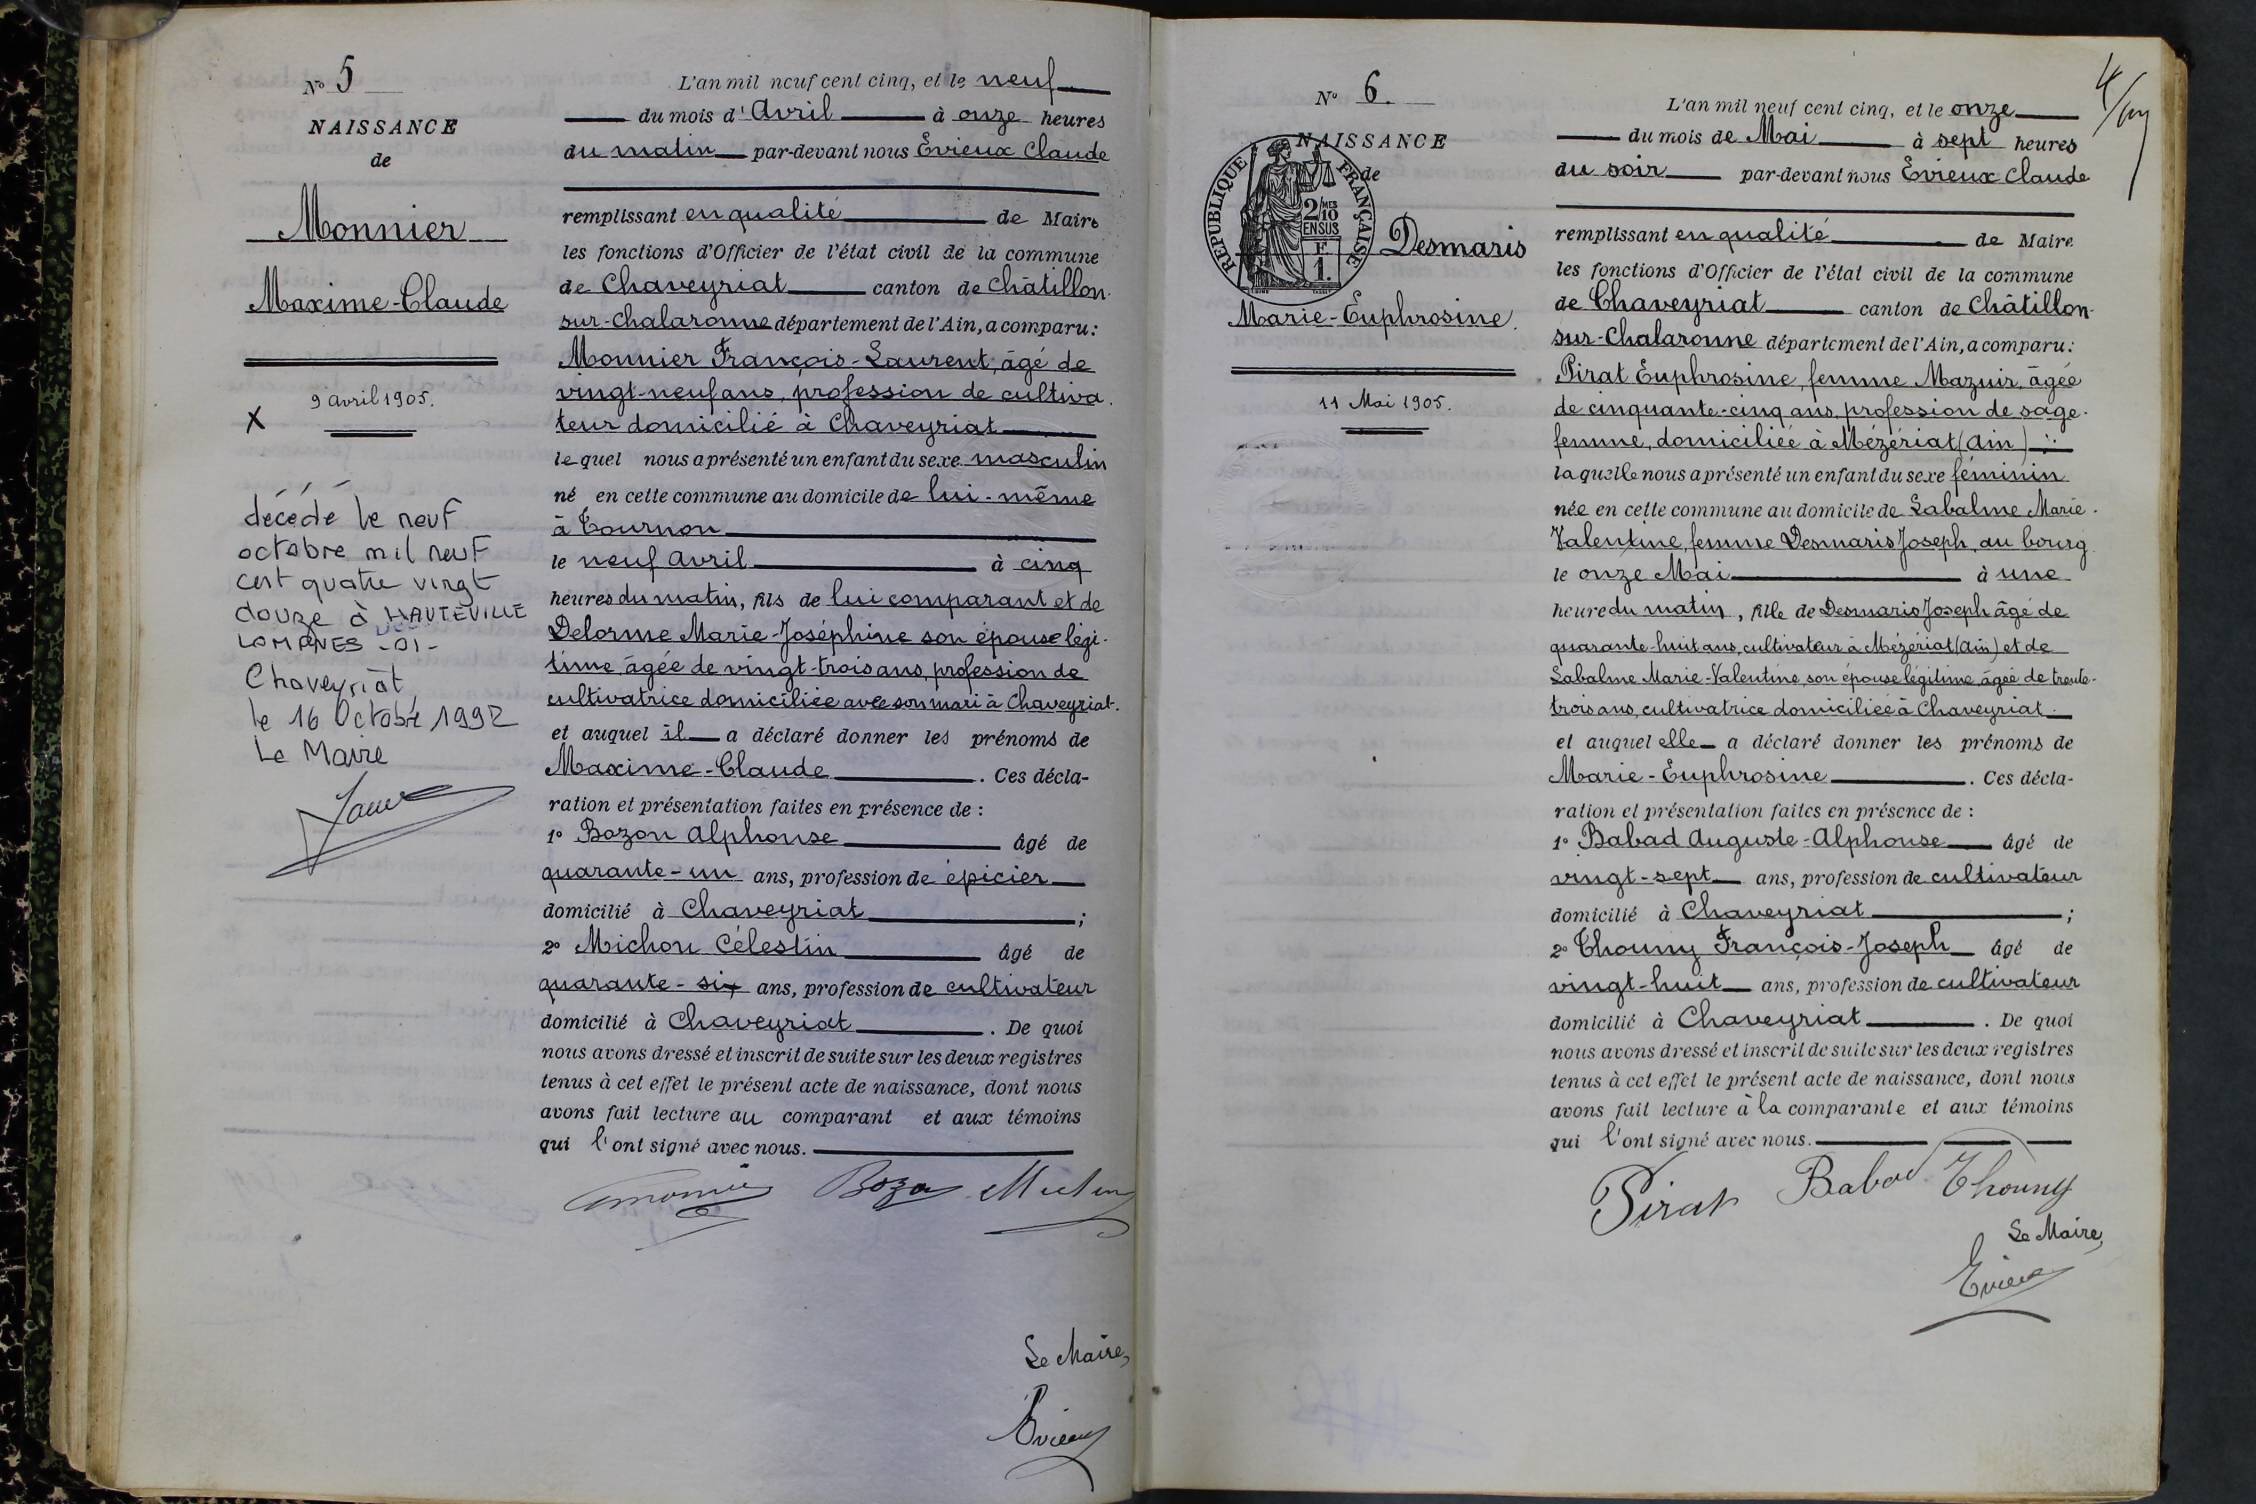 N° 5
NAISSANCE
de
Monnier
Maxime-Claude
9 avril 1905.
X
décédé le neuf
octobre mil neuf
cent quatre vingt
douze à HAUTEVILLE
LOMPNES -01-
Chaveyriat,
le 16 Octobre 1992
Le Maire
L'an mil neuf cent cinq, et le neuf
du mois d'Avril à onze heures
du matin par-devant nous Evieux Claude
remplissant en qualité de Maire
les fonctions d'Officier de l'état civil de la commune
de Chaveyriat canton de Châtillon-
sur-Chalaronne département de l'Ain, a comparu :
Monnier François-Laurent, âgé de
vingt-neuf ans, profession de cultiva-
teur domicilié à Chaveyriat
lequel nous a présenté un enfant du sexe masculin
né en cette commune au domicile de lui-même
à Tournon
le neuf Avril à cinq
heures du matin, fils de lui comparant et de
Delorme Marie-Joséphine son épouse légi-
time âgée de vingt-trois ans, profession de
cultivatrice domiciliée avec son mari à Chaveyriat.
et auquel il a déclaré donner les prénoms de
Maxime-Claude. Ces décla-
ration et présentation faites en présence de :
1° Bozon Alphonse âgé de
quarante-un ans, profession de épicier
domicilié à Chaveyriat ;
2° Michon Célestin âgé de
quarante-six ans, profession de cultivateur
domicilié à Chaveyriat. De quoi
nous avons dressé et inscrit de suite sur les deux registres
tenus à cet effet le présent acte de naissance, dont nous
avons fait lecture au comparant et aux témoins
qui l'ont signé avec nous.
Le Maire,
Evieux
N° 6.
NAISSANCE
de
REPUBLIQUE FRANÇAISE
2/10 MES
EN SUS
F.
1.
Desmaris
Marie-Euphrosine.
11 Mai 1905.
L'an mil neuf cent cinq, et le onze
du mois de Mai à sept heures
du soir par-devant nous Evieux Claude
remplissant en qualité de Maire
les fonctions d'Officier de l'état civil de la commune
de Chaveyriat canton de Châtillon-
sur-Chalaronne département de l'Ain, a comparu :
Pirat Euphrosine, femme Mazuir, âgée
de cinquante-cinq ans, profession de sage-
femme, domiciliée à Mézériat (Ain)
laquelle nous a présenté un enfant du sexe féminin
née en cette commune au domicile de Labalme Marie-
Valentine, femme Desmaris Joseph, au bourg
le onze Mai à une
heure du matin, fille de Desmaris Joseph âgé de
quarante-huit ans, cultivateur à Mézériat (Ain) et de
Labalme Marie-Valentine, son épouse légitime, âgée de trente-
trois ans, cultivatrice domiciliée à Chaveyriat
et auquel elle a déclaré donner les prénoms de
Marie-Euphrosine. Ces décla-
ration et présentation faites en présence de :
1° Babad Auguste-Alphonse âgé de
vingt-sept ans, profession de cultivateur
domicilié à Chaveyriat ;
2° Thouny François-Joseph âgé de
vingt-huit ans, profession de cultivateur
domicilié à Chaveyriat. De quoi
nous avons dressé et inscrit de suite sur les deux registres
tenus à cet effet le présent acte de naissance, dont nous
avons fait lecture à la comparante et aux témoins
qui l'ont signé avec nous.
Pirat Babad Thouny
Le Maire,
Evieux